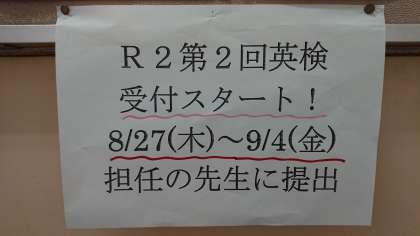 R2第2回英検
受付スタート!
8/27(木)～9/4(金)
担任の先生に提出